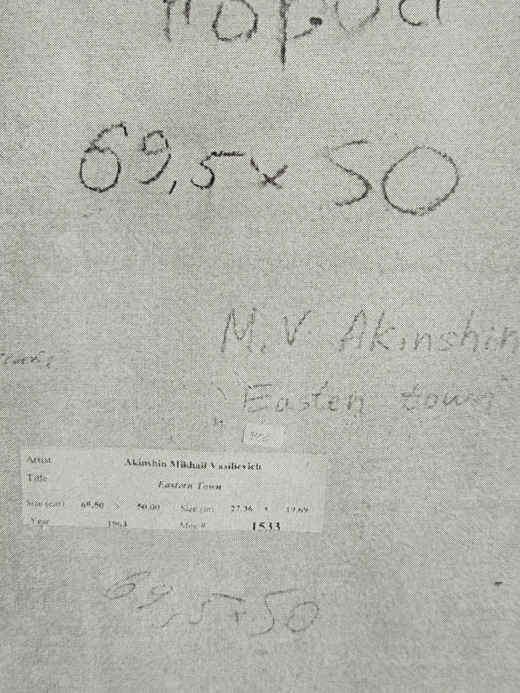 город
69,5 x 50
M.V. Akinshin
"Easten town"
Artist Akinshin Mikhail Vasilievich
Title Eastern Town
Size (cm) 69,50 x 50,00 Size (in) 27,36 x 19,69
Year 1963 1533
69,5x50